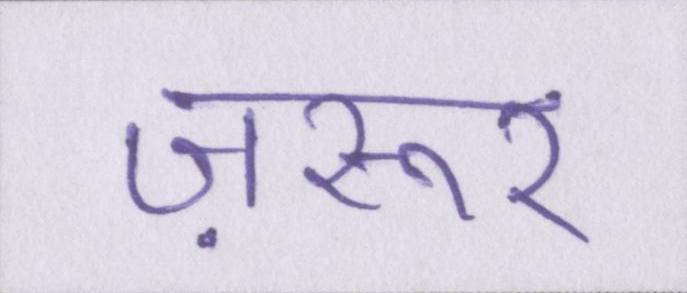 ज़रूर